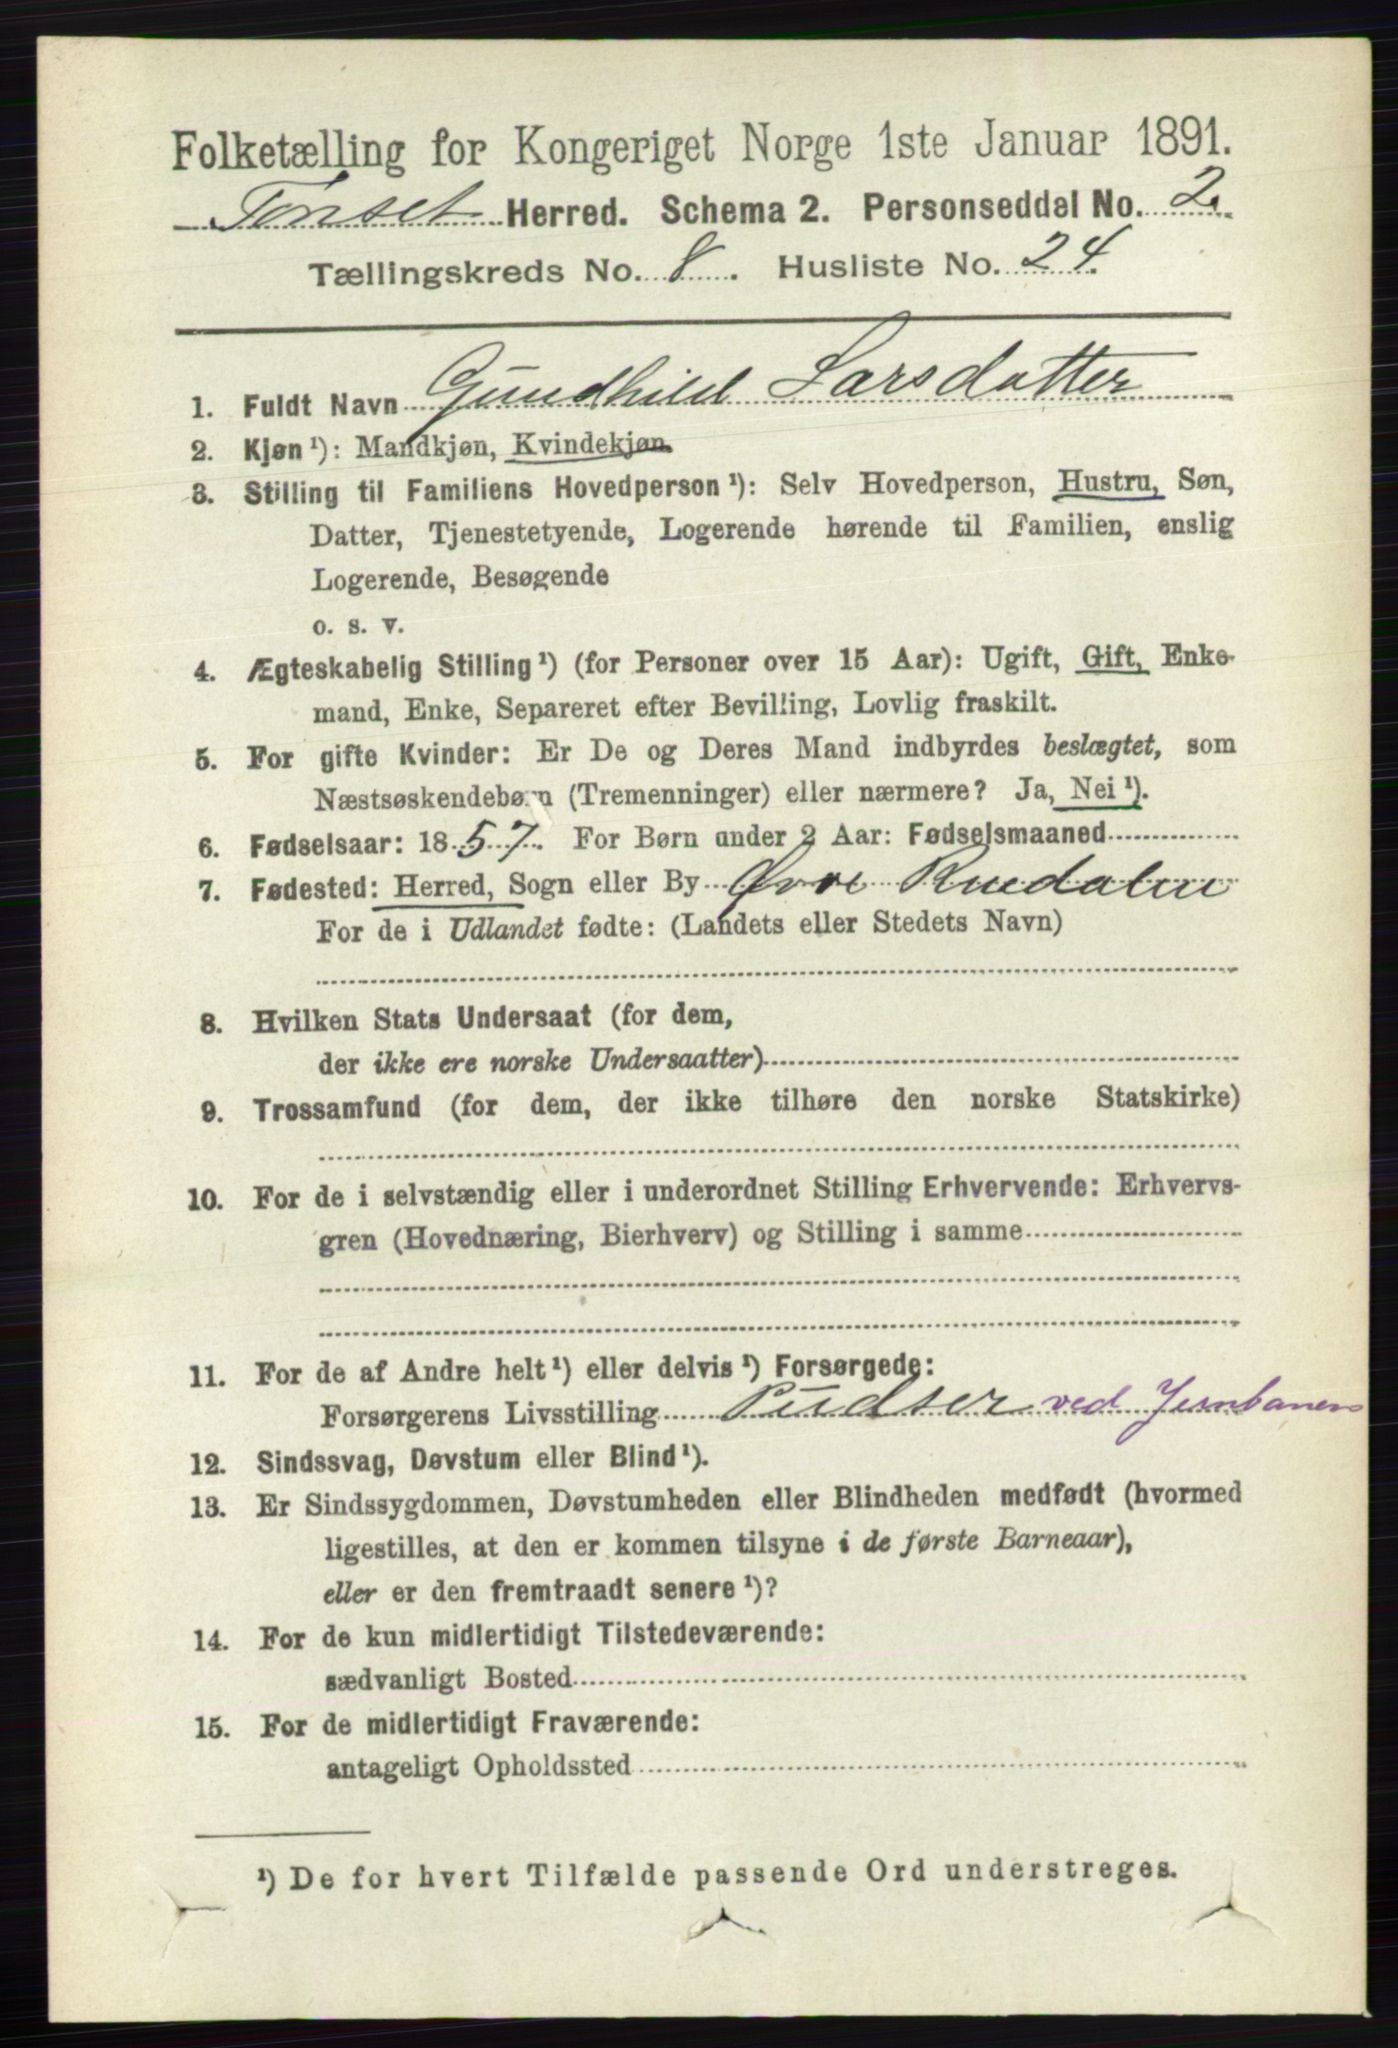 Folketælling for Kongeriget Norge 1ste Januar 1891.
Tønset Herred. Schema 2. Personseddel No. 2.
Tællingskreds No. 8. Husliste No. 24.
1. Fuldt Navn Gundhild Larsdatter
2. Kjøn¹): Mandkjøn, Kvindekjøn.
3. Stilling til Familiens Hovedperson¹): Selv Hovedperson, Hustru, Søn,
Datter, Tjenestetyende, Logerende hørende til Familien, enslig
Logerende, Besøgende
o. s. v.
4. Ægteskabelig Stilling¹) (for Personer over 15 Aar): Ugift, Gift, Enke-
mand, Enke, Separeret efter Bevilling, Lovlig fraskilt.
5. For gifte Kvinder: Er De og Deres Mand indbyrdes beslægtet, som
Næstsøskendebørn (Tremenninger) eller nærmere? Ja, Nei¹).
6. Fødselsaar: 1857. For Børn under 2 Aar: Fødselsmaaned
7. Fødested: Herred, Sogn eller By Øvre Rendalen
For de i Udlandet fødte: (Landets eller Stedets Navn)
8. Hvilken Stats Undersaat (for dem,
der ikke ere norske Undersaatter)
9. Trossamfund (for dem, der ikke tilhøre den norske Statskirke)
10. For de i selvstændig eller i underordnet Stilling Erhvervende: Erhvervs-
gren (Hovednæring, Bierhverv) og Stilling i samme
11. For de af Andre helt¹) eller delvis¹) Forsørgede:
Forsørgerens Livsstilling Pudser ved Jernbanen
12. Sindssvag, Døvstum eller Blind¹).
13. Er Sindssygdommen, Døvstumheden eller Blindheden medfødt (hvormed
ligestilles, at den er kommen tilsyne i de første Barneaar),
eller er den fremtraadt senere¹)?
14. For de kun midlertidigt Tilstedeværende:
sædvanligt Bosted
15. For de midlertidigt Fraværende:
antageligt Opholdssted
¹) De for hvert Tilfælde passende Ord understreges.